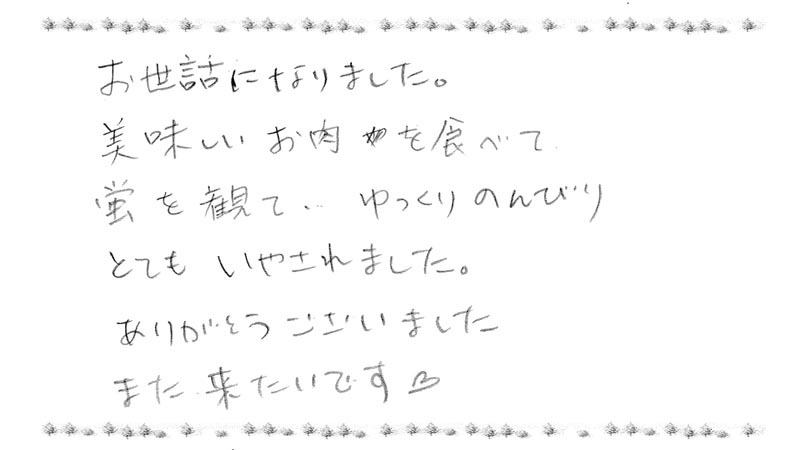 お世話になりました。
美味しいお肉を食べて
蛍を観て‥ ゆっくりのんびり
とても いやされました。
ありがとうございました
また来たいです♡